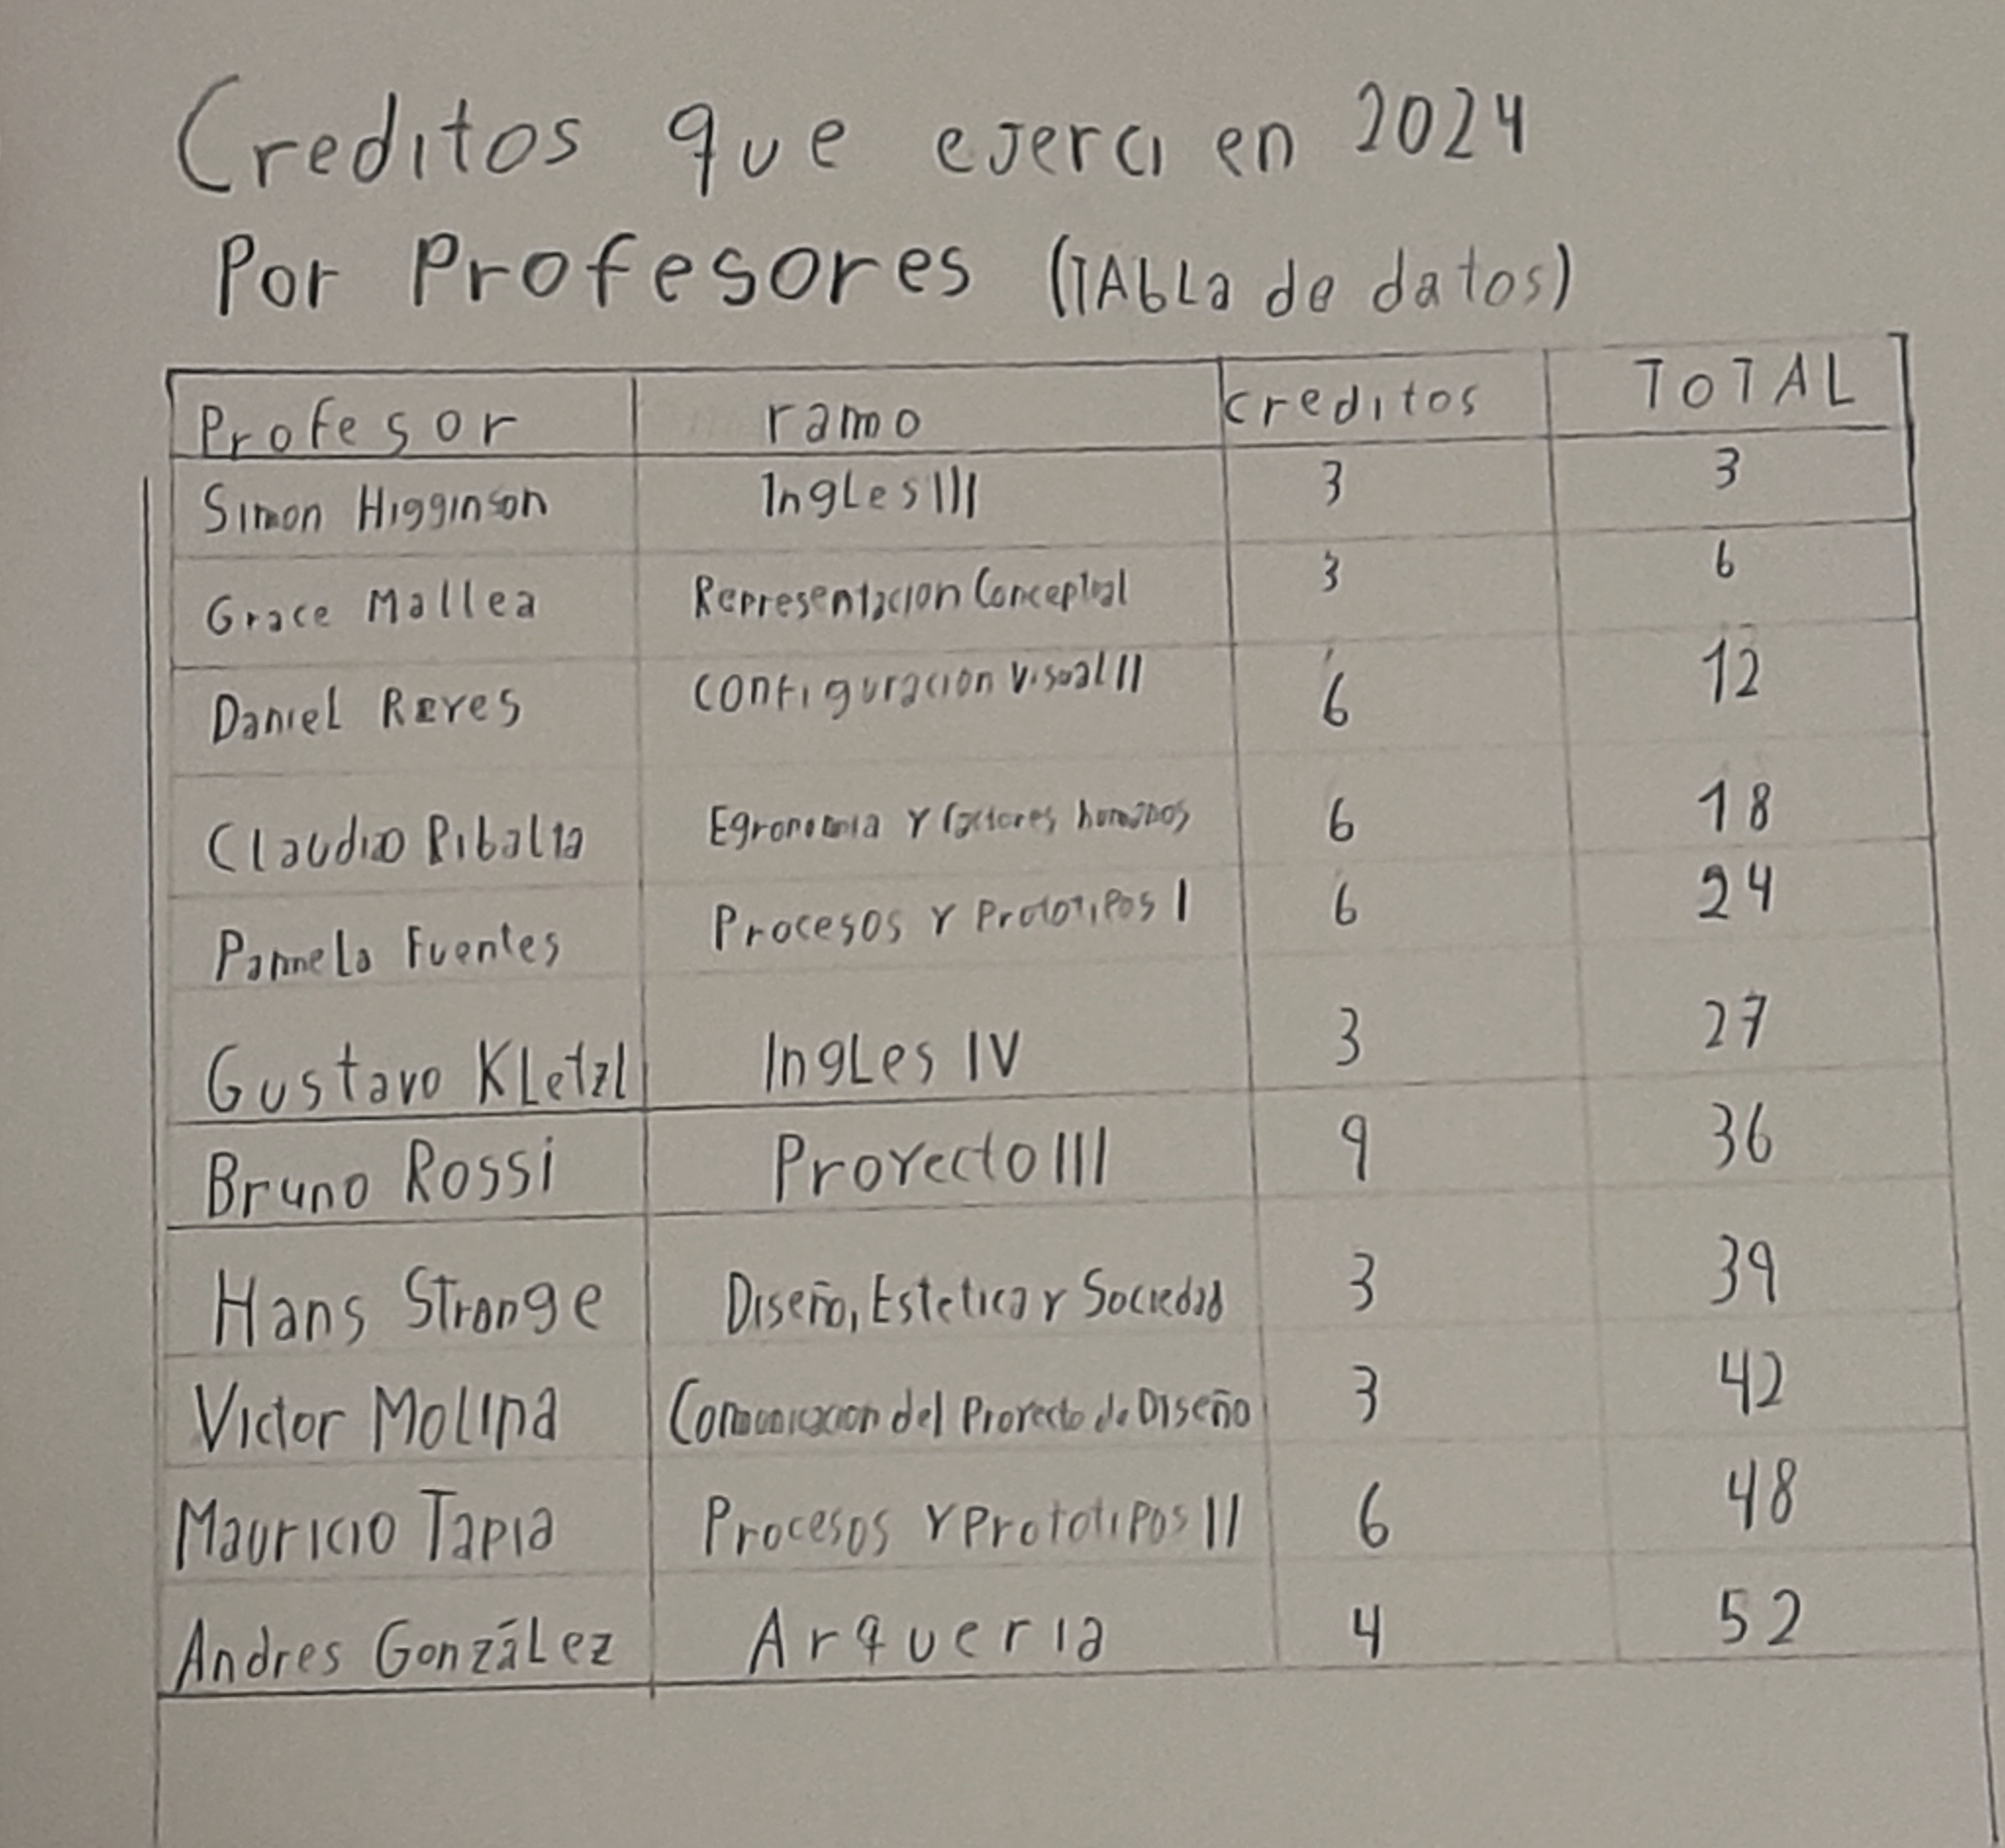 Creditos que ejerci en 2024
Por Profesores (TABLa de datos)
Profesor ramo creditos TOTAL
Simon Higginson Ingles III 3 3
Grace Mallea Representacion Conceptual 3 6
Daniel Reyes Configuracion Visual II 6 12
Claudio Ribalta Egronomia y factores humanos 6 18
Pamela Fuentes Procesos y Prototipos I 6 24
Gustavo Kletzl Ingles IV 3 27
Bruno Rossi Proyecto III 9 36
Hans Strange Diseño, Estetica y Sociedad 3 39
Victor Molina Comunicacion del Proyecto de Diseño 3 42
Mauricio Tapia Procesos y Prototipos II 6 48
Andres González Arqueria 4 52